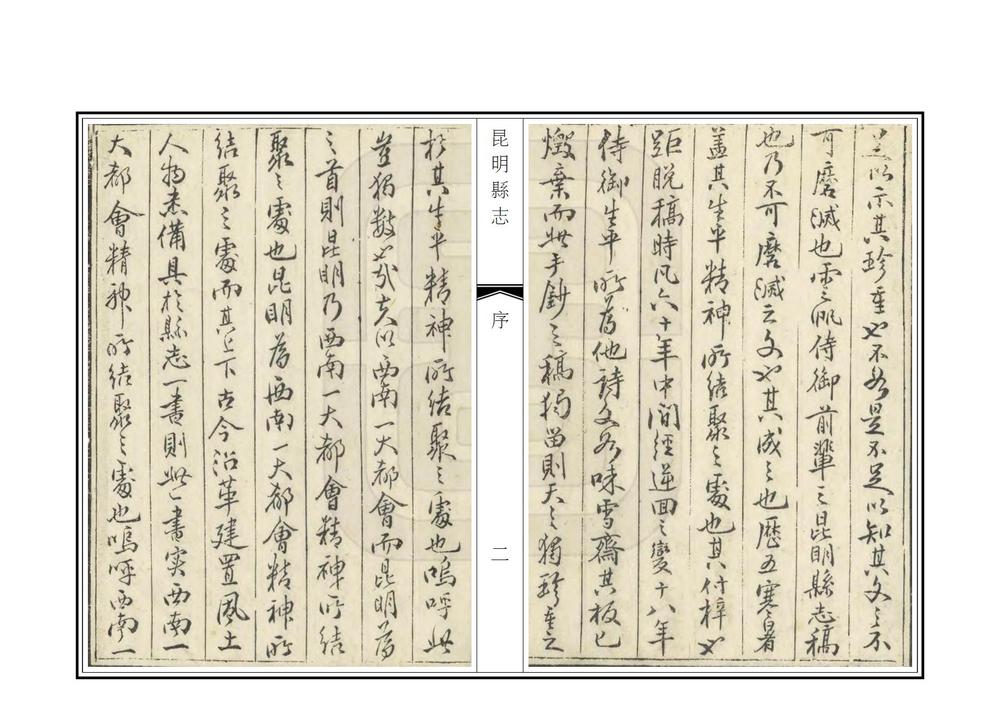 以示其珍重也不如是不足以知其文之不
可磨滅也雲帆侍御前輩之昆明縣志稿
也乃不可磨滅之文也其成之也歷五寒暑
蓋其生平精神所結聚之處也其付梓也
距脫稿時凡六十年中間經逆回之變十八年
侍御生平所為他詩文如味雪齋其板已
燬棄而此手鈔之稿獨留則天之獨珍重之
昆明縣志
序
二
於其生平精神所結聚之處也嗚呼此
豈獨數也哉夫以西南一大都會而昆明為
之首則昆明乃西南一大都會精神所結
聚之處也昆明為西南一大都會精神所
結聚之處而其上下古今沿革建置風土
人物悉備具於縣志一書則此一書實西南一
大都會精神所結聚之處也嗚呼西南一